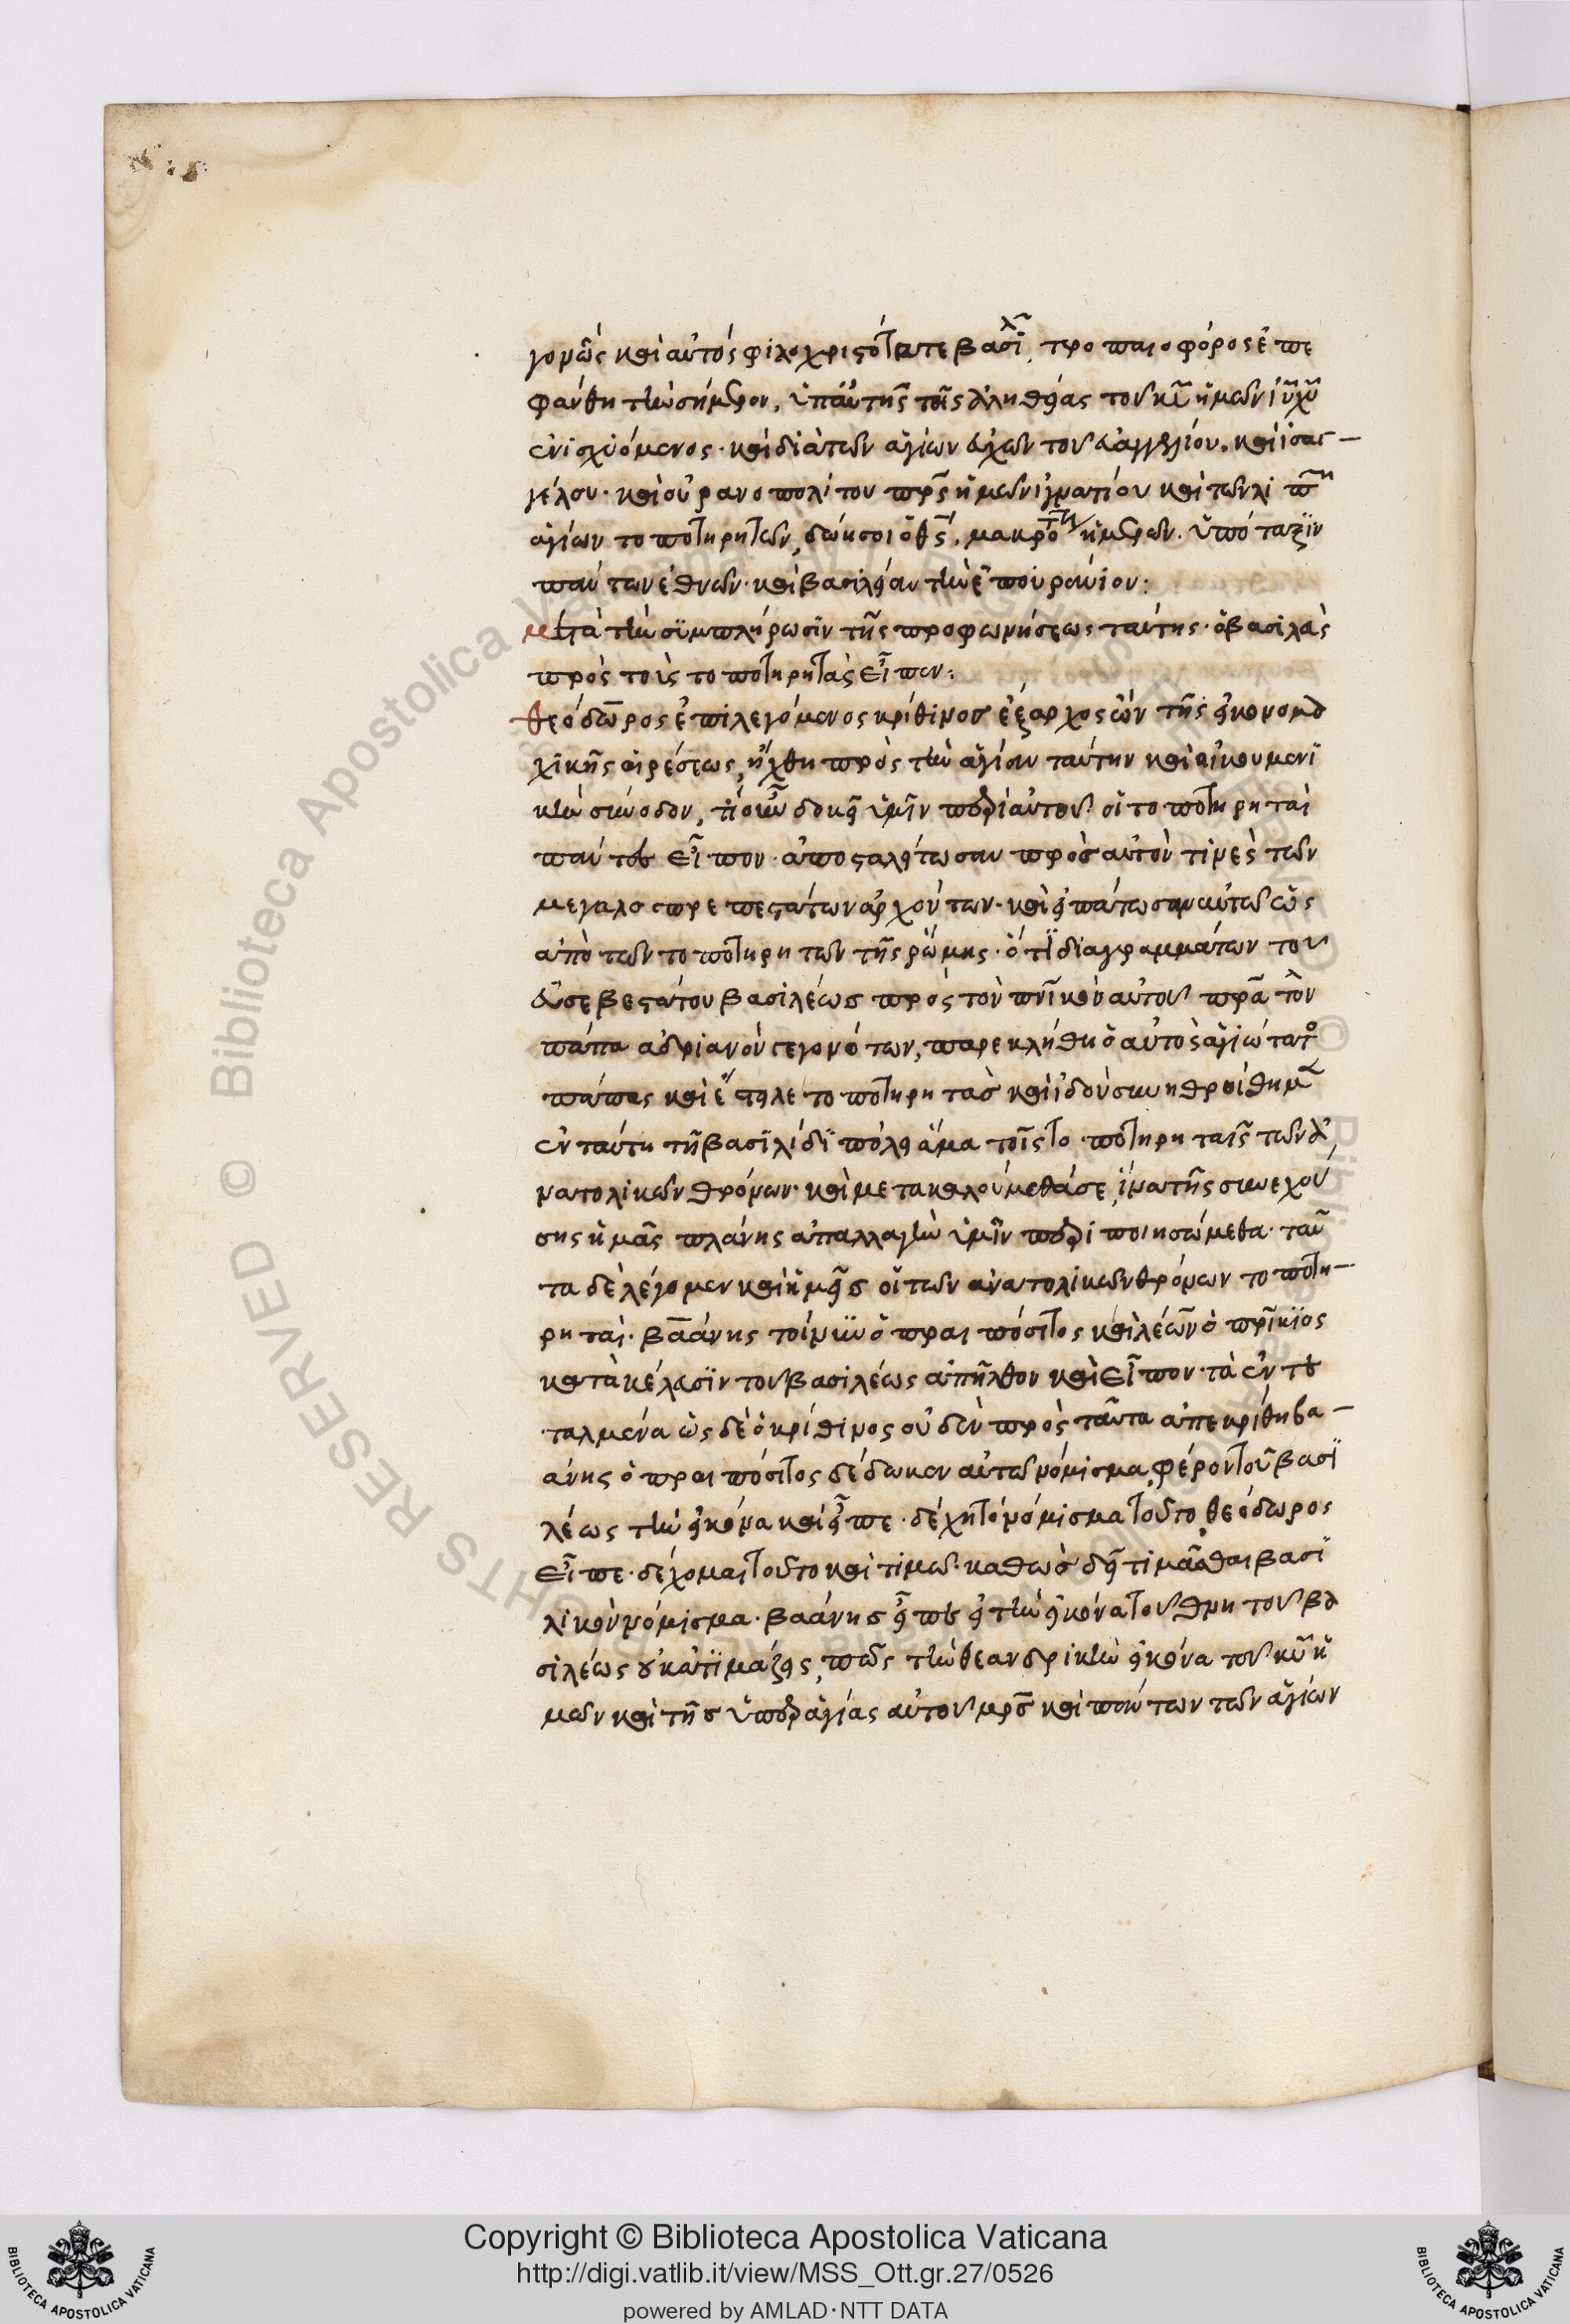 γονὼς καὶ αὐτὸς φιλοχριστότατε βασιλ̃, τροπαιοφόρος ἐπε
φάνθη τὴν σήμερον, ὑπ' αὐτῆς τῆς ἀληθείας τοῦ κῦ ἡμῶν ἰῦ χῦ
ἐνισχυόμενος· καὶ διὰ τῶν ἁγίων εὐχῶν τοῦ εὐαγγελίου, καὶ ἰσαγ-
γέλου· καὶ οὐρανοπολίτου πρς ἡμῶν ἰγνατίου καὶ τῶν
ἁγίων τοποτηρητῶν, δώη σοι ὁ θς, μακρότη ἡμερῶν. ὑπόταξιν
πάντων ἐθνῶν· καὶ βασιλείαν τὴν ἐπουράνιον:
μετὰ τὴν συμπλήρωσιν τῆς προσφωνήσεως ταύτης· ὁ βασιλεὺς
πρὸς τοὺς τοποτηρητὰς εἶπεν:
θεόδωρος ἐπιλεγόμενος κρίθινος ἔξαρχος ὢν τῆς εἰκονομα
χικῆς αἱρέσεως, ἤχθη πρὸς τὴν ἁγίαν ταύτην καὶ οἰκουμενι
κὴν σύνοδον, τί οὖν δοκεῖ ὑμῖν περὶ αὐτοῦ οἱ τοποτηρηταὶ
πάντες εἶπον· ἀποσταλήτωσαν πρὸς αὐτὸν τινὲς τῶν
μεγαλοπρεπεστάτων ἀρχόντων· καὶ εἰπάτωσαν αὐτῶ ὡς
ἀπὸ τῶν τοποτηρητῶν τῆς ῥώμης· ὅτι διὰ γραμμάτων τοῦ
εὐσεβεστάτου βασιλέως πρὸς τὸν πνικὸν αὐτοῦ πρα τὸν
πάπα ἀδριανὸν γεγονότων, παρεκλήθη ὁ αὐτὸς ἁγιώτατος
πάπας καὶ ἔστειλε τοποτηρητὰς καὶ ἰδοὺ συνηθροίσθημεν
ἐν ταύτη τῆ βασιλίδι πόλει ἅμα τοῖς τοποτηρηταῖς τῶν ἀ
νατολικῶν θρόνων· καὶ μετακαλούμεθά σε, ἵνα τῆς συνεχού
σης ἡμᾶς πλάνης ἀπαλλαγὴν ὑμῖν περιποιησώμεθα· ταῦ
τα δὲ λέγομεν καὶ ἡμεῖς οἱ τῶν ἀνατολικῶν θρόνων τοποτη-
ρηταί· βαάνης τοίνυν ὁ πραιπόσιτος καὶ λέων ὁ πρίκιος
κατὰ κέλευσιν τοῦ βασιλέως ἀπῆλθον καὶ εἶπον· τὰ ἐντε
ταλμένα ὡς δὲ ὁ κρίθινος οὐδὲν πρὸς ταῦτα ἀπεκρίθη βα-
άνης ὁ πραιπόσιτος δέδωκεν αὐτῶ νόμισμα, φέρον τοῦ βασι
λέως τὴν εἰκόνα καὶ εἶπε· δέχη τὸ νόμισμα τοῦτο, θεόδωρος
εἶπε· δέχομαι τοῦτο καὶ τιμῶ· καθὼς δεῖ τιμᾶσθαι βασι
λικὸν νόμισμα· βαάνης εἶπεν εἰ τὴν εἰκόνα τοῦ θνητοῦ βα
σιλέως οὐκ ἀτιμάζεις, πῶς τὴν θεανδρικὴν εἰκόνα τοῦ κῦ ἡ
μῶν καὶ τῆς ὑπεραγίας αὐτοῦ μρς καὶ πάντων τῶν ἁγίων
Copyright © Biblioteca Apostolica Vaticana
http://digi.vatlib.it/view/MSS_Ott.gr.27/0526
powered by AMLAD·NTT DATA